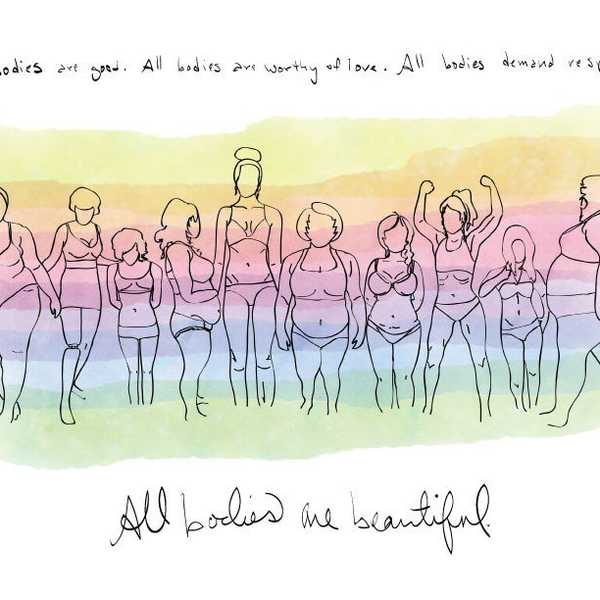 bodies are good. All bodies are worthy of love. All bodies demand resp
All bodies are beautiful.